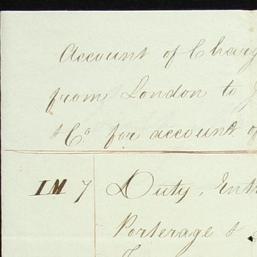 Account of Charg
from London to
& Co for account of
IM 7 Duty, Ent
Porterage &